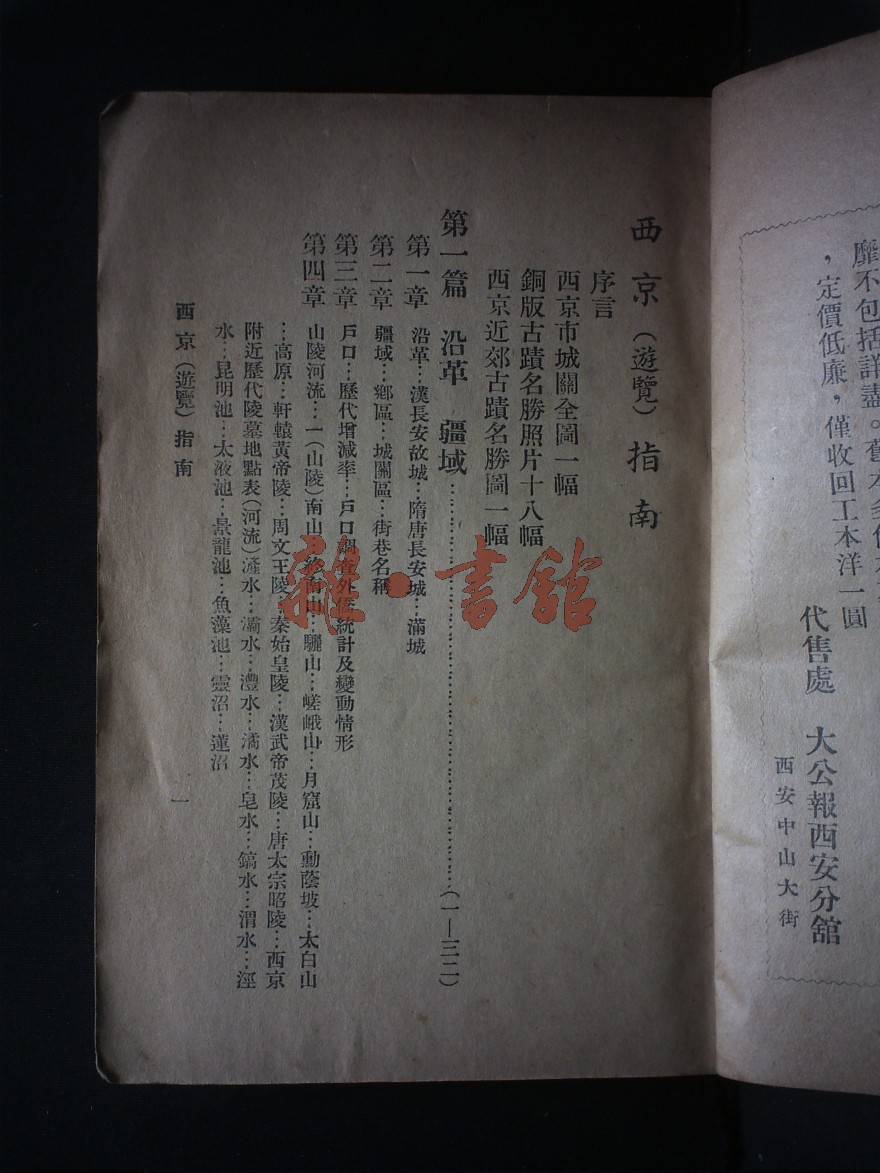 靡不包括詳盡。舊
，定價低廉，僅收回工本洋一圓
代售處　大公報西安分舘
西安中山大街
西京（遊覽）指南
序言
西京市城關全圖一幅
銅版古蹟名勝照片十八幅
西京近郊古蹟名勝圖一幅
第一篇　沿革　疆域……………………………………（一—三二）
第一章　沿革…漢長安故城…隋唐長安城…滿城
第二章　疆域…鄉區…城關區…街巷名稱
第三章　戶口…歷代增減率…戶口調查外僑統計及變動情形
第四章　山陵河流…一（山陵）南山…終南山…驪山…嵯峨山…月窟山…動蔭坡…太白山
…高原…軒轅黃帝陵…周文王陵…秦始皇陵…漢武帝茂陵…唐太宗昭陵…西京
附近歷代陵墓地點表（河流）滻水…灞水…灃水…潏水…皂水…鎬水…渭水…涇
水…昆明池…太液池…景龍池…魚藻池…靈沼…蓮沼
西京（遊覽）指南
一
雜·書舘